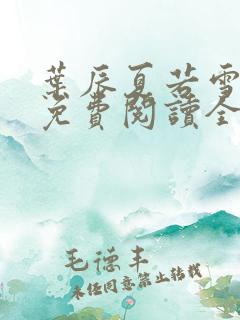 葉辰夏若雪
免費閱讀全
毛德丰
未任同意禁止转载